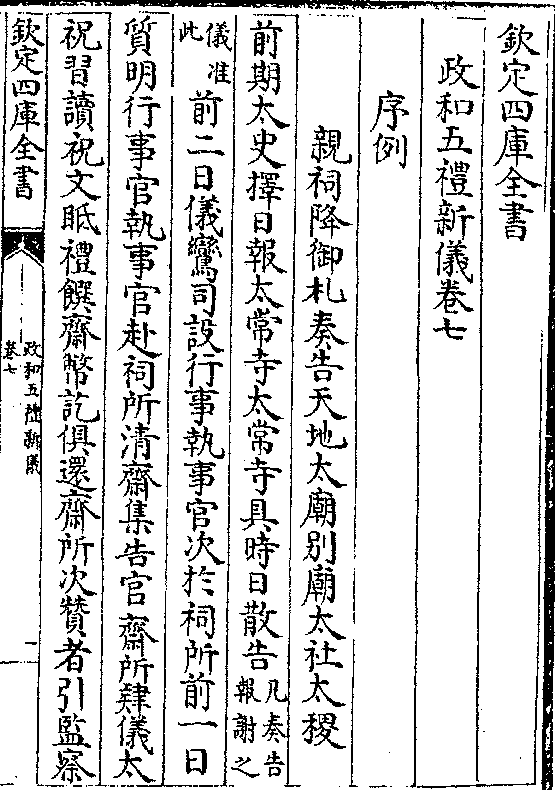 欽定四庫全書
政和五禮新儀卷七
序例
親祠降御札奏告天地太廟別廟太社太稷
前期太史擇日報太常寺太常寺具時日散告凡奏告報謝之
儀准此前二日儀鸞司設行事執事官次於祠所前一日
質明行事官執事官赴祠所清齋集告官齋所肄儀太
祝習讀祝文眡禮饌齋幣訖俱還齋所次贊者引監察
欽定四庫全書
政和五禮新儀
卷七
一